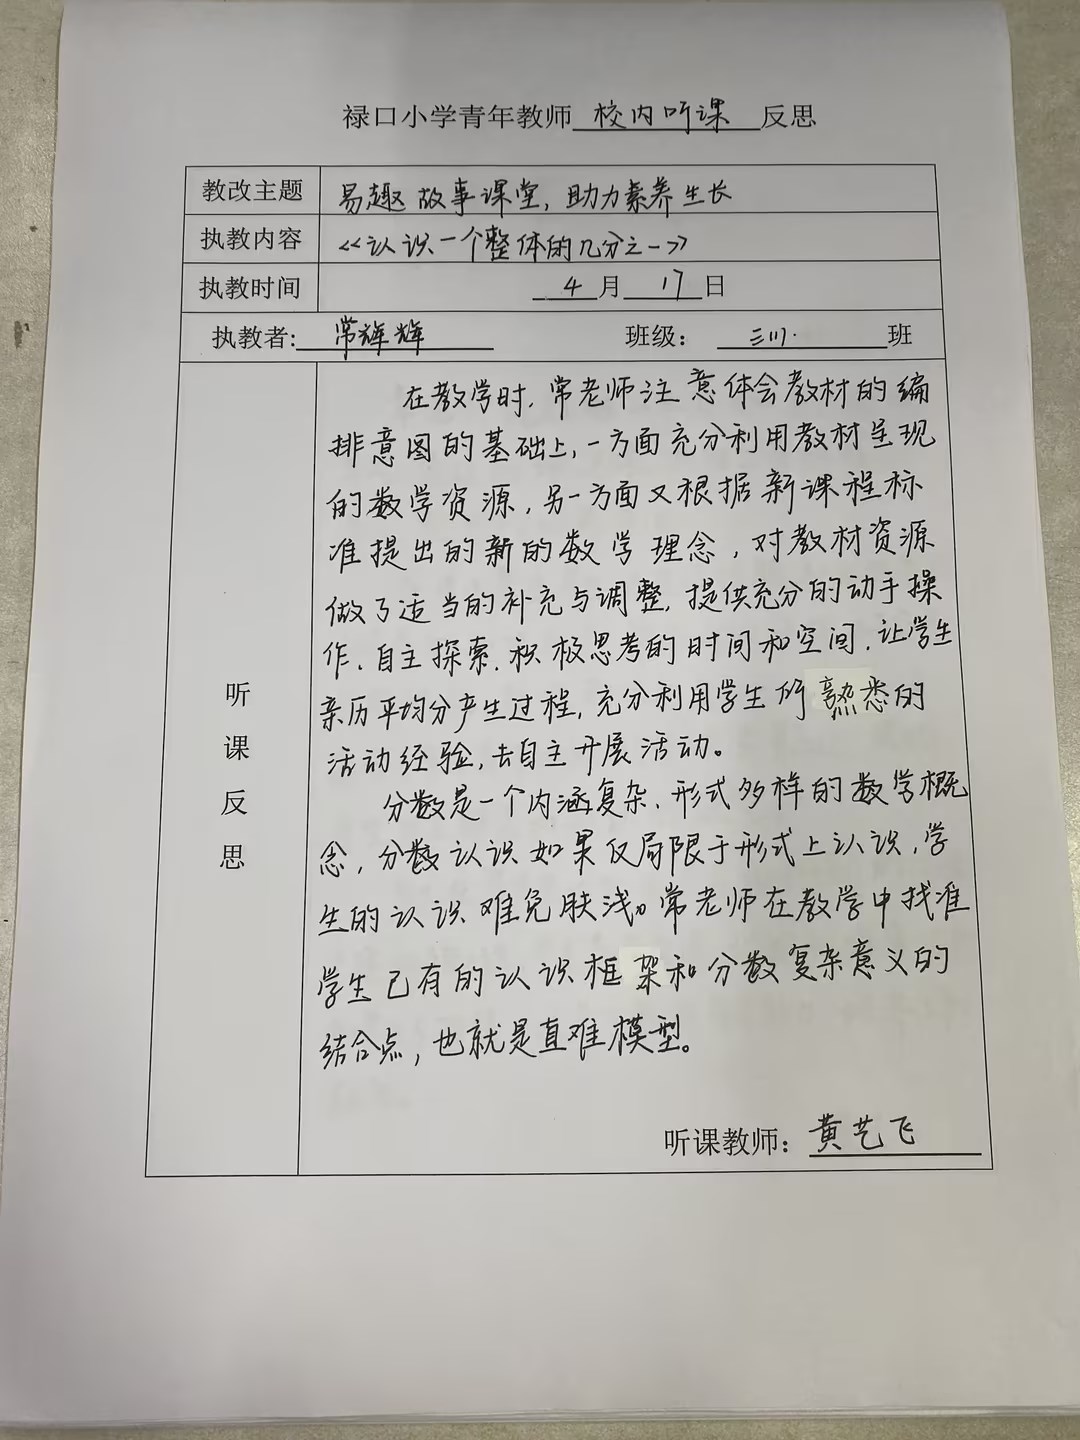 禄口小学青年教师 校内听课 反思
教改主题 易趣故事课堂，助力素养生长
执教内容 《认识一个整体的几分之一》
执教时间 4 月 17 日
执教者: 常辉辉 班级： 班
听课反思
在教学时，常老师注意体会教材的编
排意图的基础上，一方面充分利用教材呈现
的数学资源，另一方面又根据新课程标
准提出的新的数学理念，对教材资源
做了适当的补充与调整，提供充分的动手操
作、自主探索、积极思考的时间和空间，让学生
亲历平均分产生过程，充分利用学生所熟悉的
活动经验，去自主开展活动。
分数是一个内涵复杂、形式多样的数学概
念，分数认识如果仅局限于形式上认识，学
生的认识难免肤浅。常老师在教学中找准
学生已有的认识框架和分数复杂意义的
结合点，也就是直难模型。
听课教师：黄艺飞